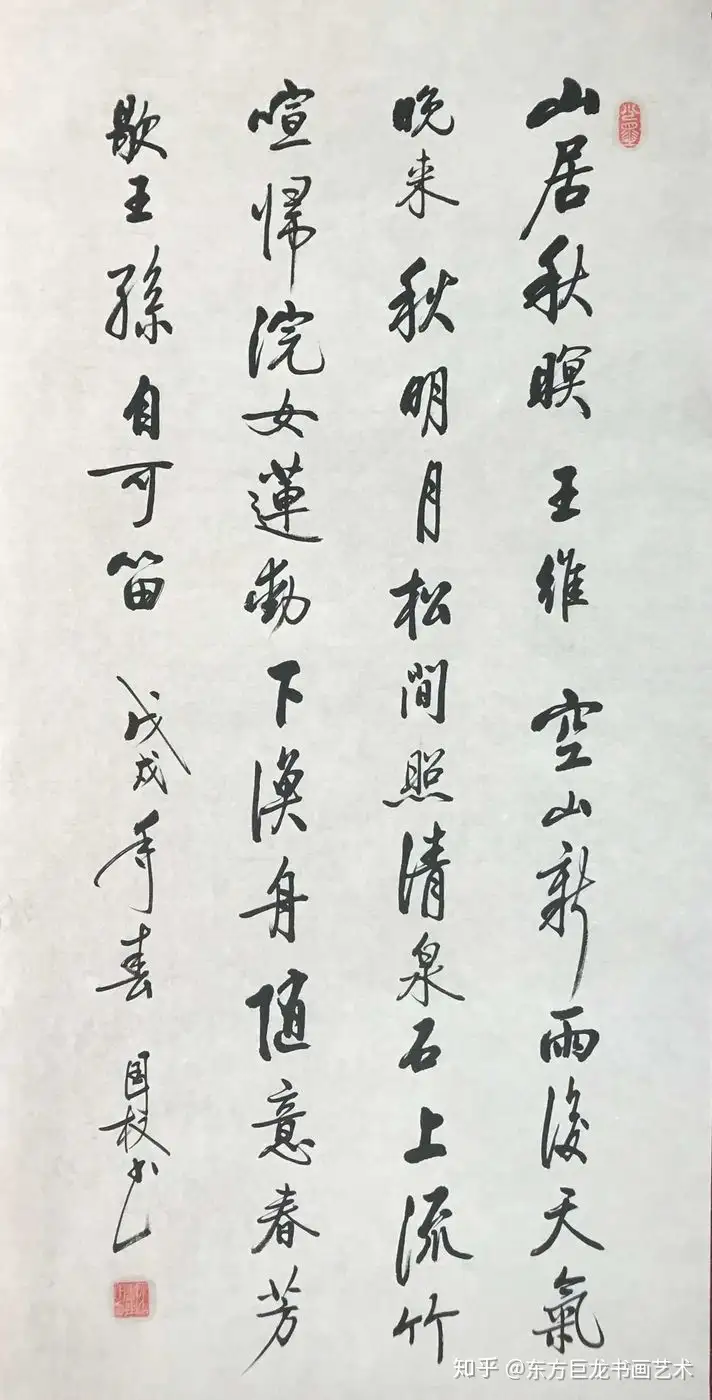 山居秋暝 王维 空山新雨後天氣
晚来秋明月松間照清泉石上流竹
喧帰浣女蓮動下漁舟随意春芳
歇王孫自可笛 戊戌年春 国校书
知乎 @东方巨龙书画艺术